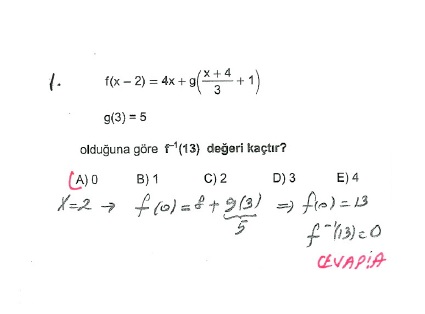 1. f(x – 2) = 4x + g((x + 4)/3 + 1)
g(3) = 5
olduğuna göre f⁻¹(13) değeri kaçtır?
A) 0 B) 1 C) 2 D) 3 E) 4
X=2 → f(0) = 8 + g(3) ⇒ f(0) = 13
5 f⁻¹(13) = 0
CEVAP:A